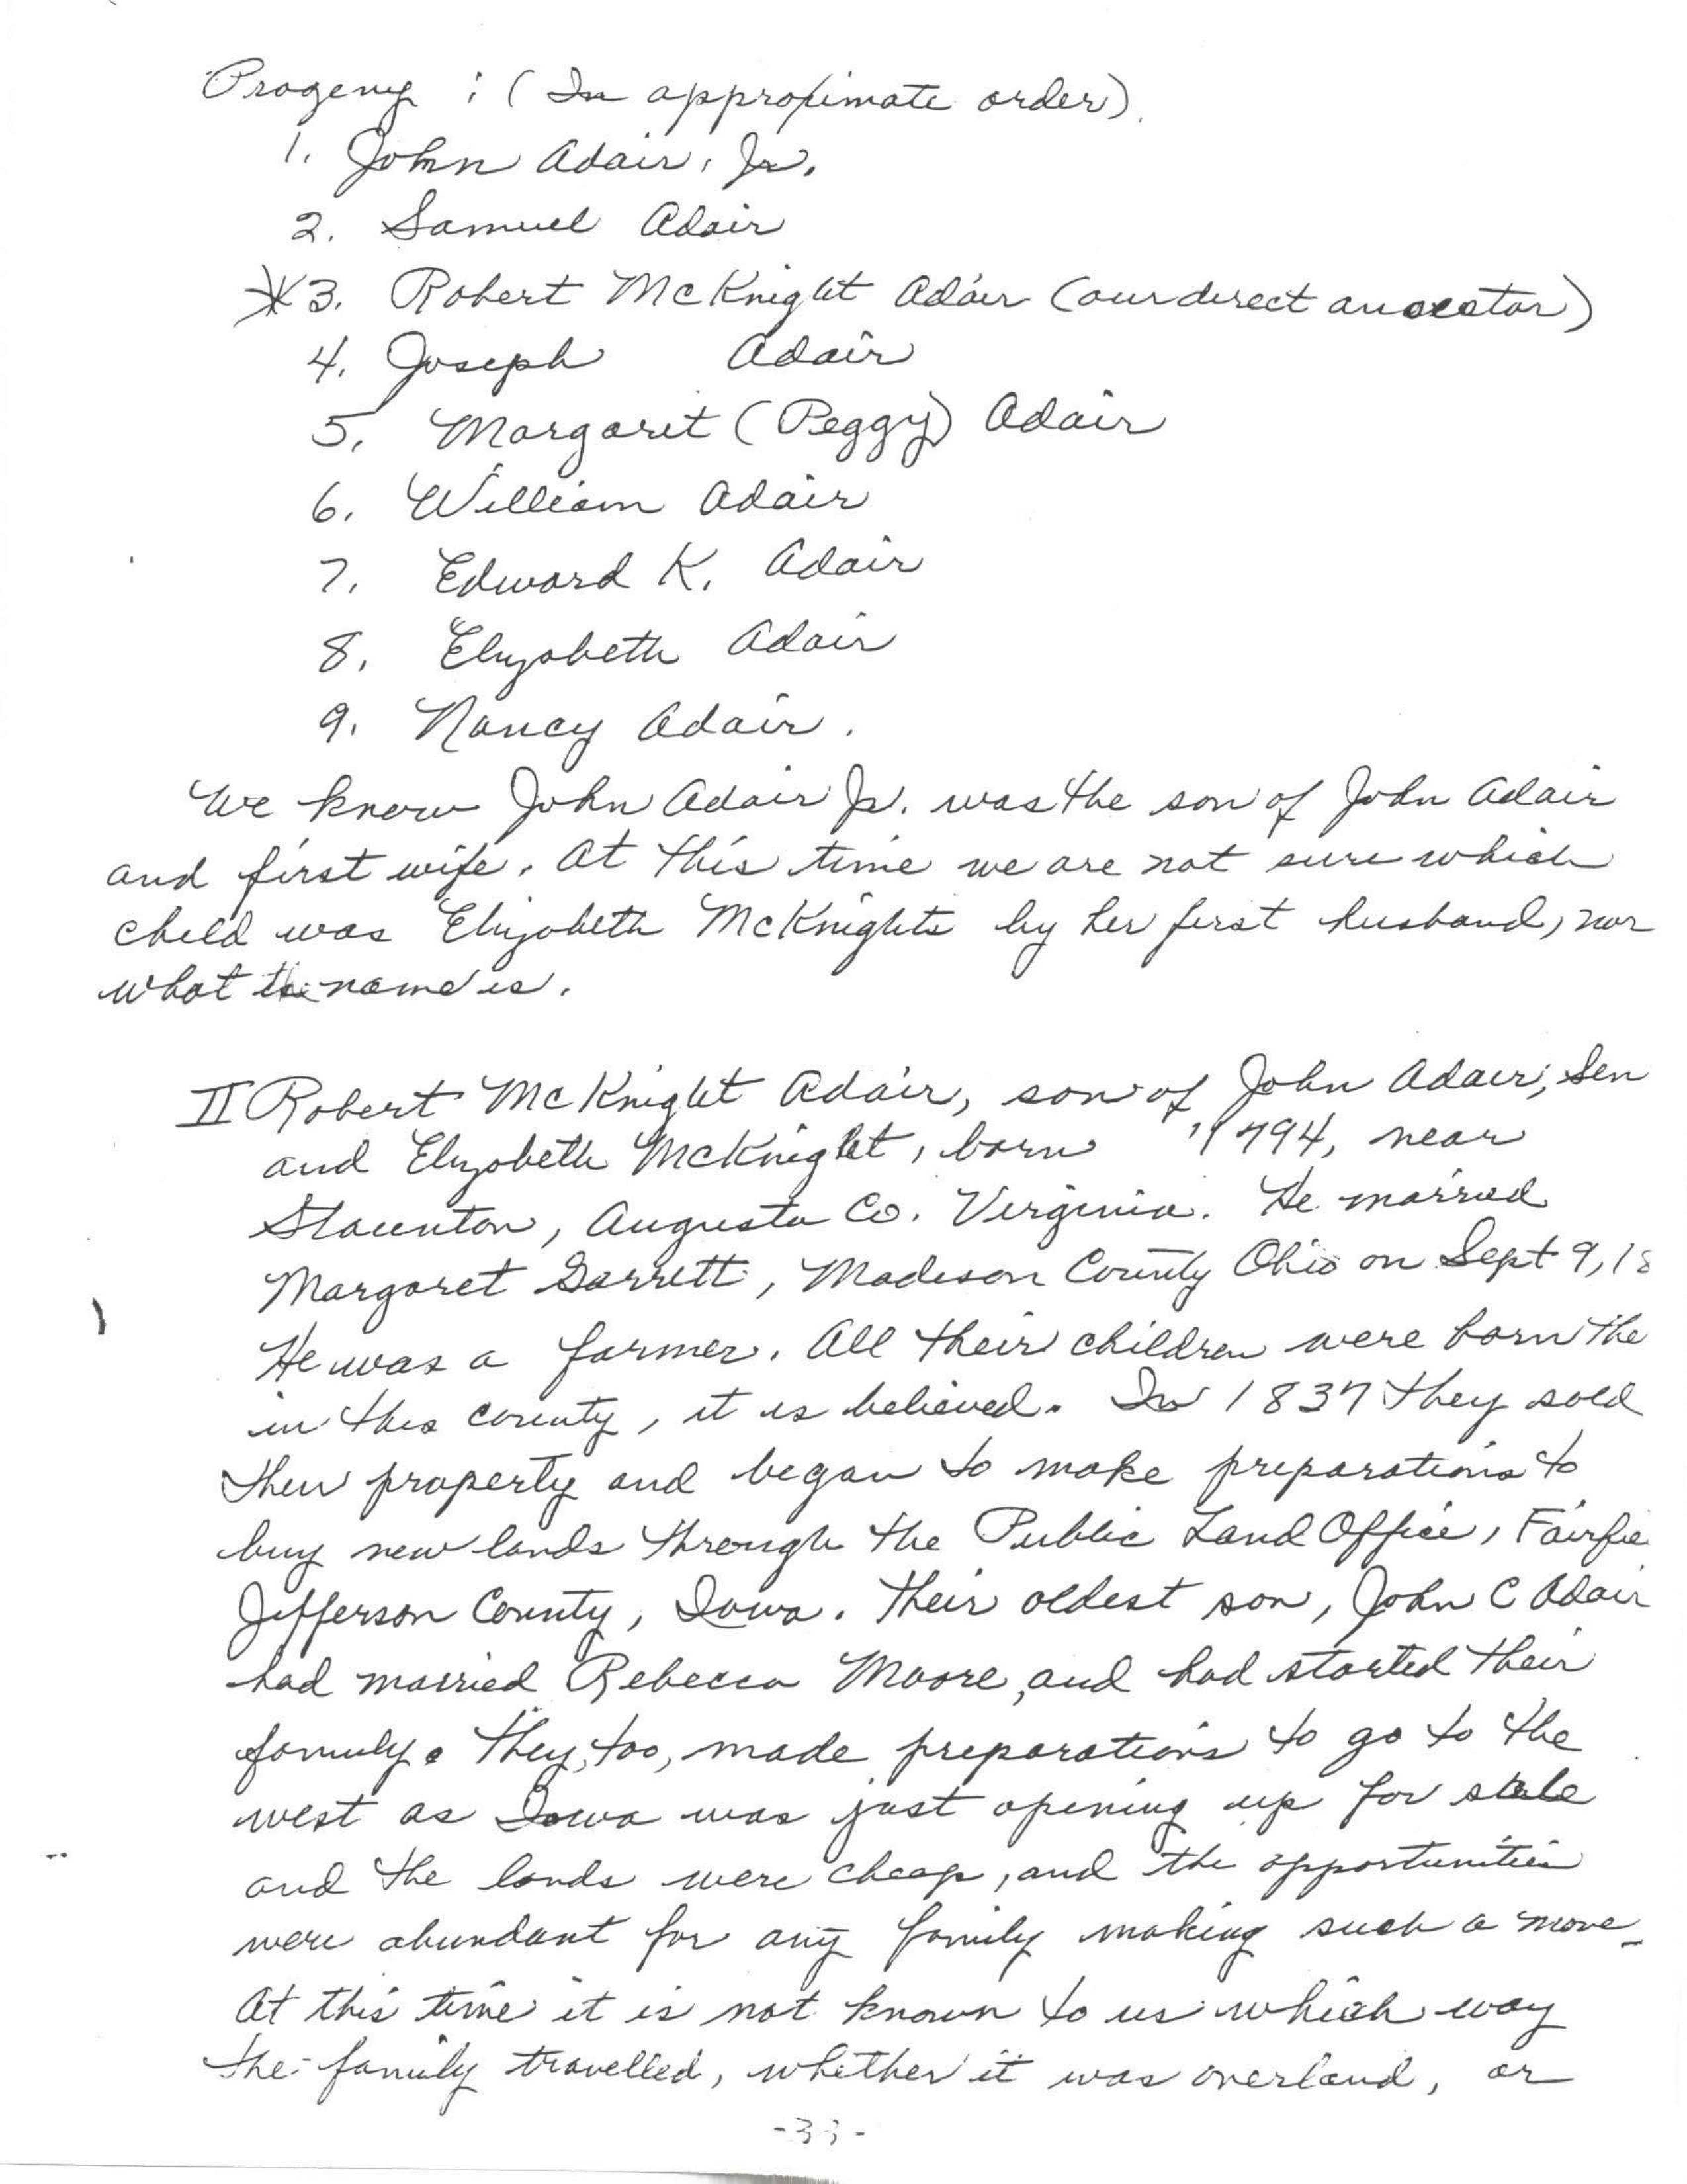 Progeny : (In approximate order).
1. John Adair, Jr.
2. Samuel Adair
*3. Robert McKnight Adair (our direct ancestor)
4. Joseph Adair
5. Margaret (Peggy) Adair
6. William Adair
7. Edward K. Adair
8. Elizabeth Adair
9. Nancy Adair.
We know John Adair Jr. was the son of John Adair
and first wife. At this time we are not sure which
child was Elizabeth McKnights by her first husband, nor
what the name is.
II Robert McKnight Adair, son of John Adair, Sen
and Elizabeth McKnight, born 1794, near
Staunton, Augusta Co. Virginia. He married
Margaret Garrett, Madison County Ohio on Sept 9, 18
He was a farmer. All their children were born the
in this county, it is believed. In 1837 they sold
their property and began to make preparations to
buy new lands through the Public Land Office, Fairfie
Jefferson County, Iowa. Their oldest son, John C Adair
had married Rebecca Moore, and had started their
family. They, too, made preparations to go to the
west as Iowa was just opening up for sale
and the lands were cheap, and the opportunities
were abundant for any family making such a move.
At this time it is not known to us which way
the family travelled, whether it was overland, or
-33-